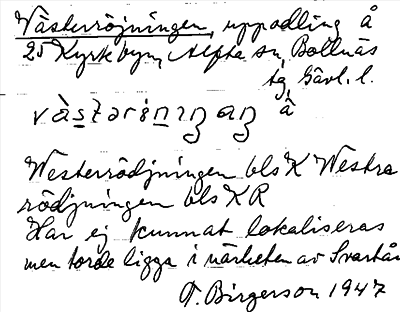 Västerröjningen, uppodling å
25 Kyrkbyn, Alfta sn, Bollnäs
tg, Gävl. l.
Westerrödjningen bls K Westra
rödjningen bls KR
Har ej kunnat lokaliseras
men torde ligga i närheten av Svartån
F. Birgerson 1947